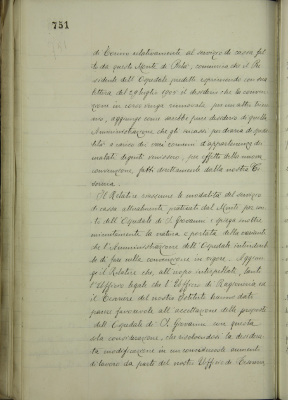 751
di Torino relativamente al servizio di cassa fat
to da questo Monte di Pietà, comunica che il Pre
sidente dell'Ospedale predetto esprimendo con sua
lettera del 29 luglio 1905 il desiderio che la conven
zione in corso venga rinnovata per un altro trien
nio, aggiunge come sarebbe pure desiderio di quella
Amministrazione che gli incassi per dozzine di speda
lità a carico dei vari comuni d'appartenenza di
malati degenti venissero, per effetto della nuova
convenzione, fatti direttamente dalla nostra Te
soreria.
Il Relatore riassume le modalità del servizio
di cassa attualmente praticato dal Monte per con
to dell'Ospedale di S. Giovanni e spiega inoltre
minutamente la natura e portata della variante
che l'Amministrazione dell'Ospedale intenderebbe
di fare nella convenzione in vigore. Aggiun
ge il Relatore che, all'uopo interpellati, tanto
l'Ufficio legale che l'Ufficio di Ragioneria ed
il Tesoriere del nostro Istituto hanno dato
parere favorevole all'accettazione delle proposte
dell'Ospedale di S. Giovanni con questa
sola considerazione, che risolvendosi la desidera
ta modificazione in un considerevole aumento
di lavoro da parte del nostro Ufficio di Tesoreria